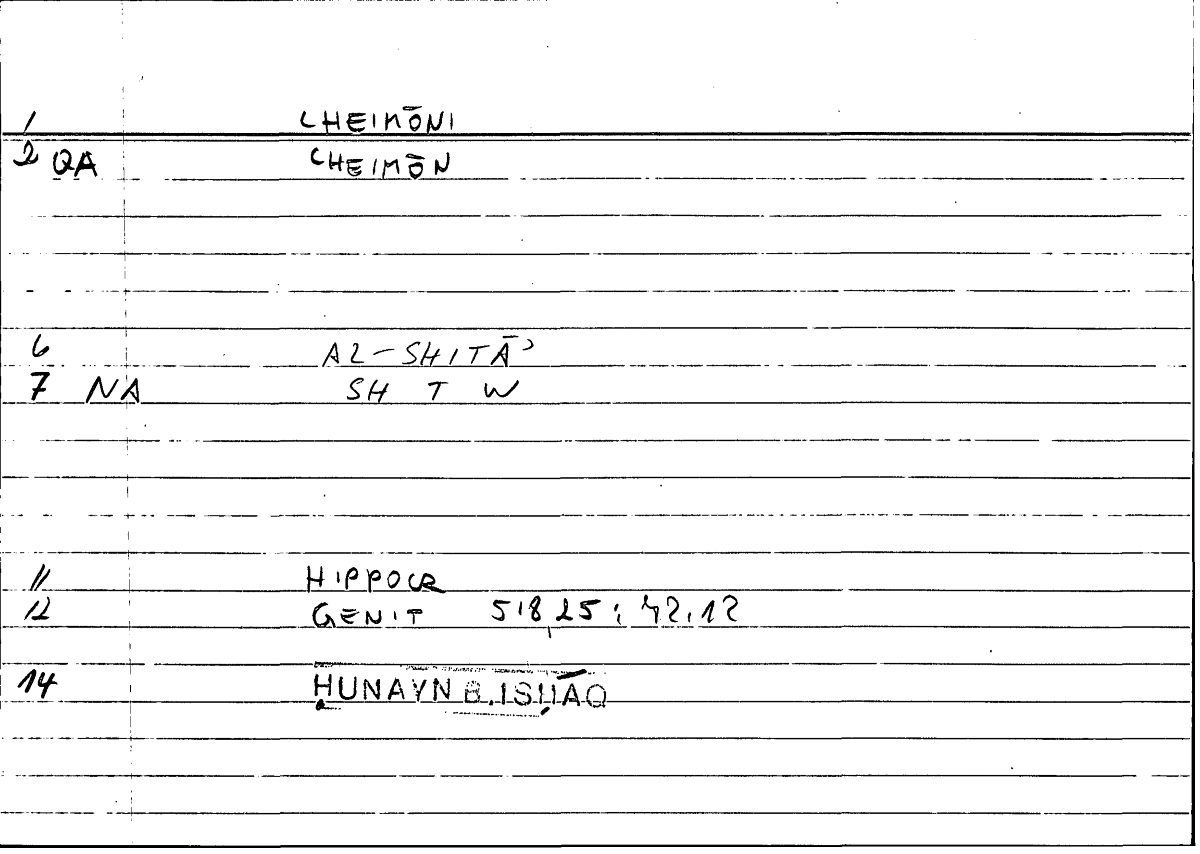 1 CHEIMŌNI
2 QA CHEIMŌN
6 AL-SHITĀʾ
7 NA SH T W
11 HIPPOCR
12 GENIT 518,25; 42.12
14 ḤUNAYN B. ISḤĀQ